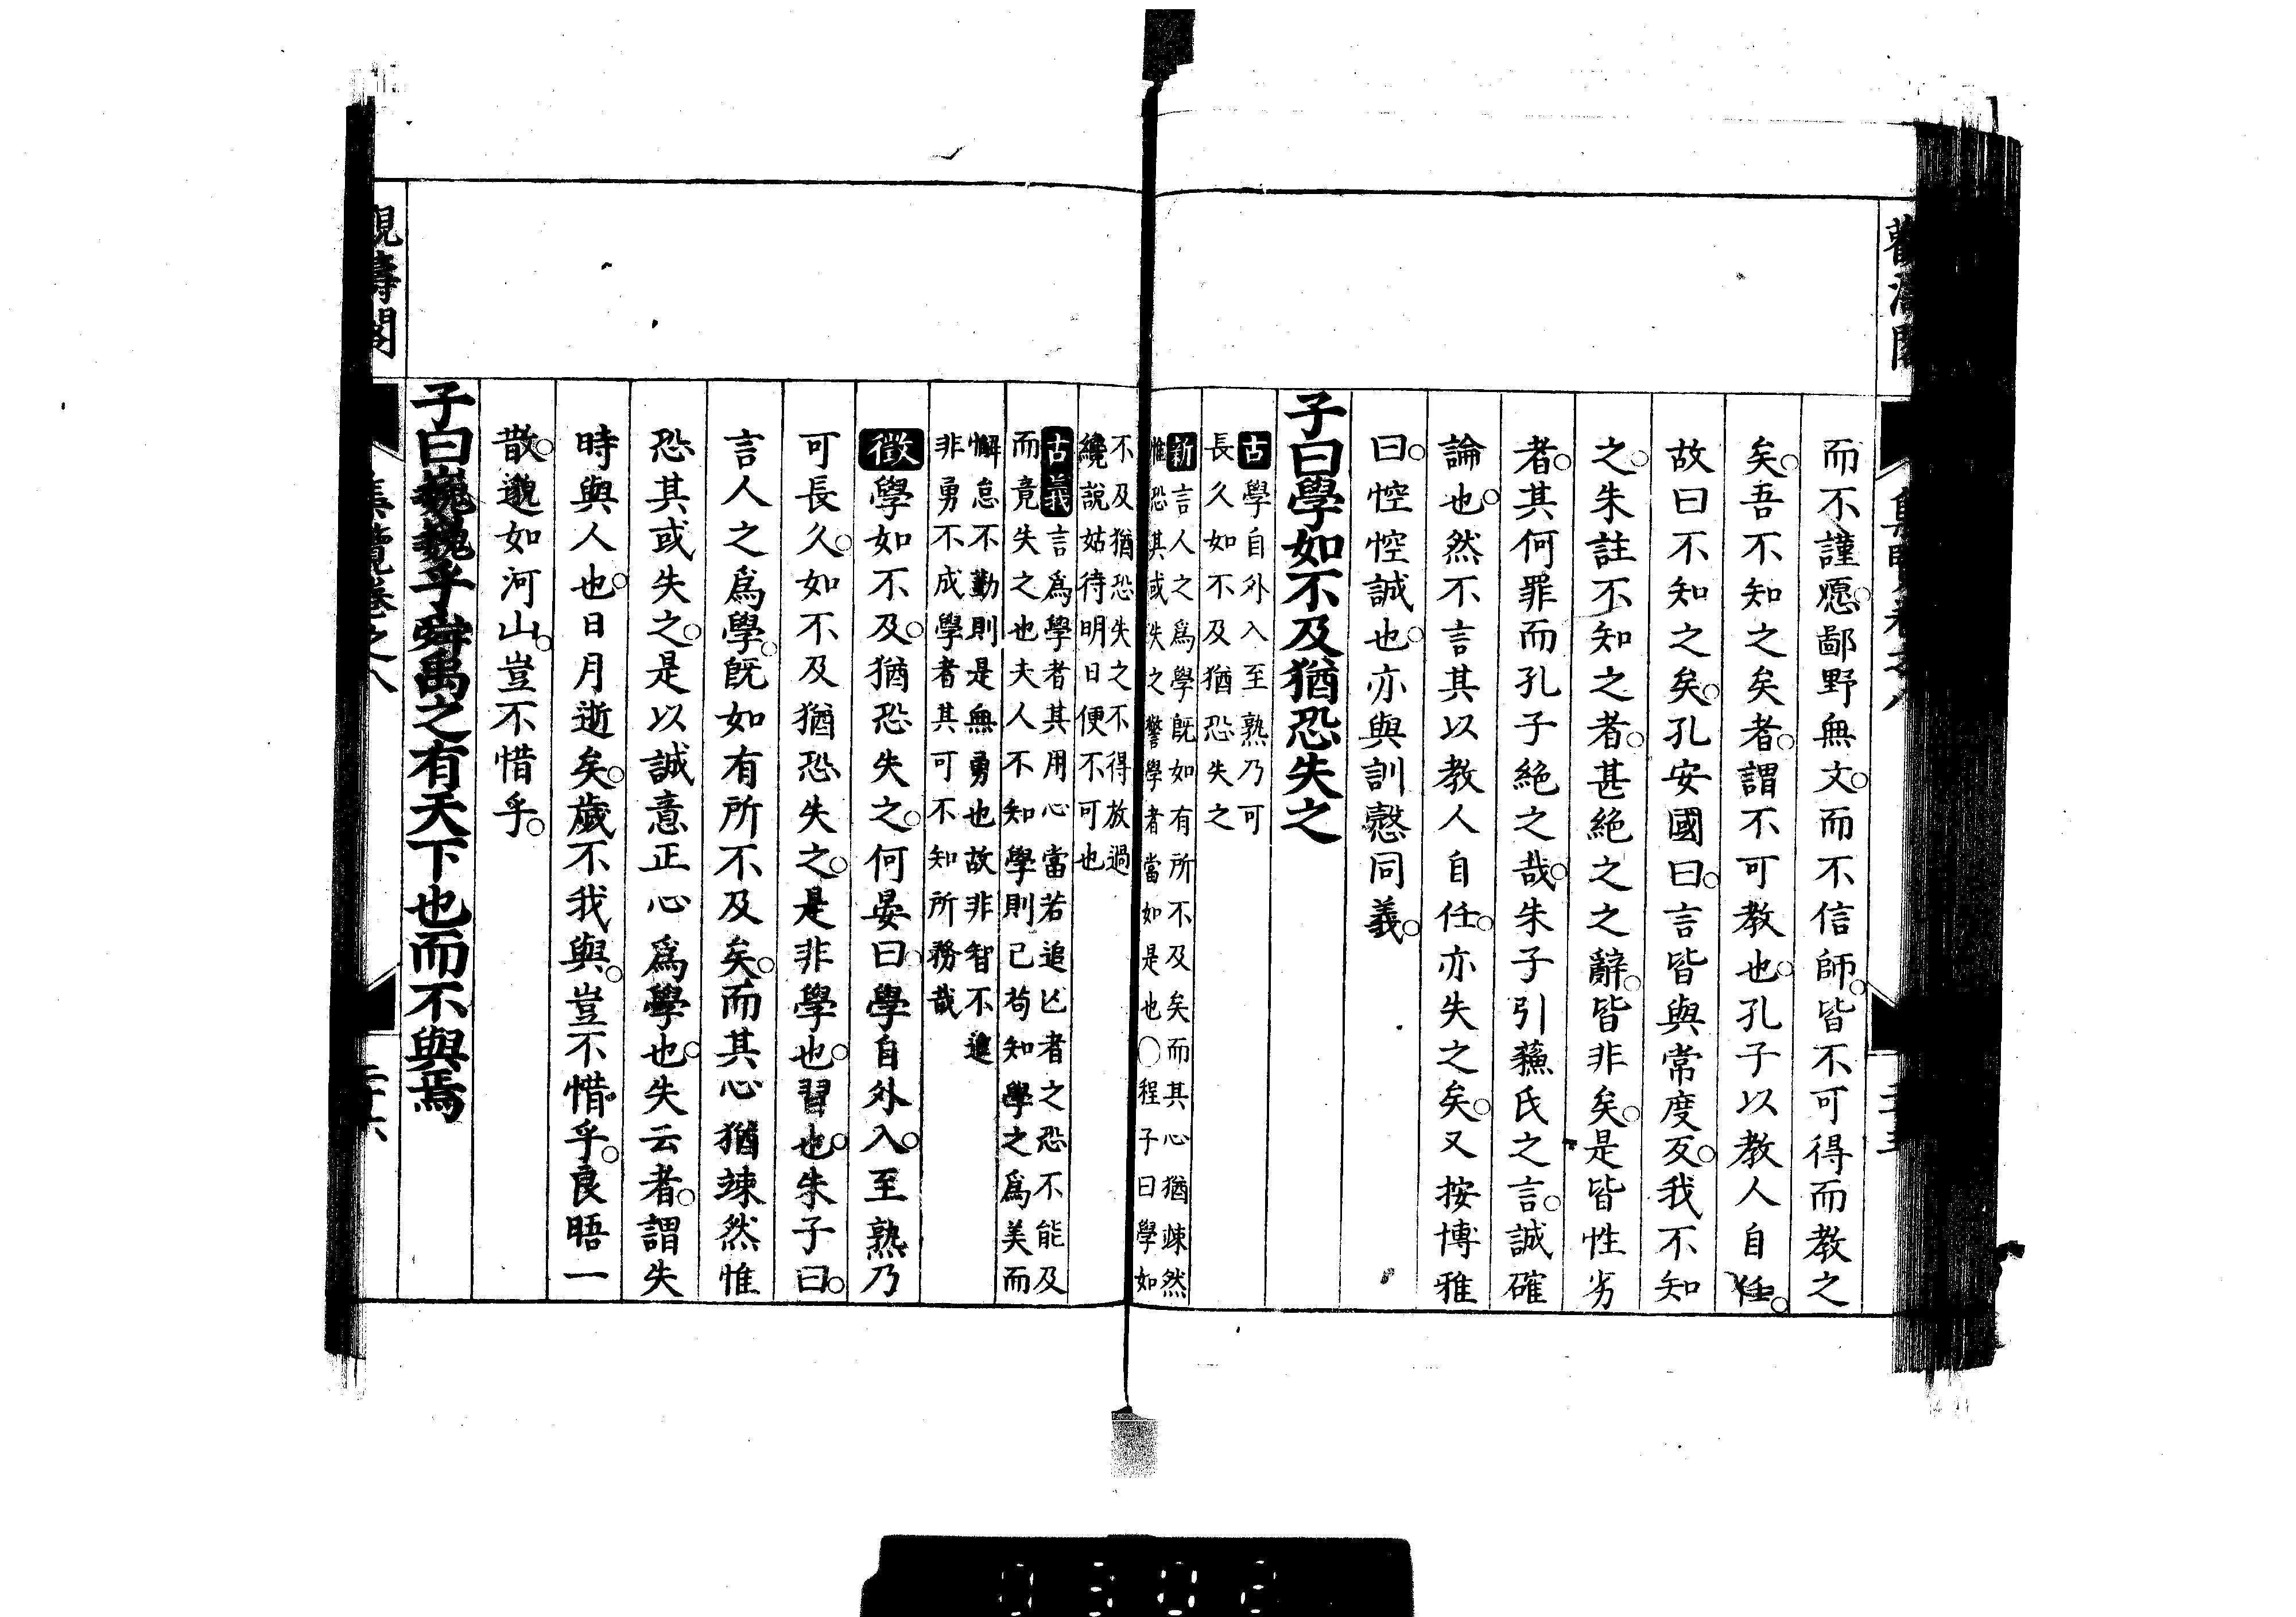 而不謹愿鄙野無文而不信師皆不可得而教之
矣吾不知之矣者謂不可教也孔子以教人自任
故曰不知之矣孔安國曰言皆與常度反我不知
之朱註不知之者甚絕之之辭皆非矣是皆性劣
者其何罪而孔子絕之哉朱子引蘇氏之言誠確
論也然不言其以教人自任亦失之矣又按博雅
曰悾悾誠也亦與訓愨同義
子曰學如不及猶恐失之
古學自外入至熟乃可
長久如不及猶恐失之
新言人之爲學既如有所不及矣而其心猶竦然
惟恐其或失之警學者當如是也○程子曰學如
不及猶恐失之不得放過
纔說姑待明日便不可也
古義言爲學者其用心當若追亾者之恐不能及
而竟失之也夫人不知學則已苟知學之爲美而
懈怠不勤則是無勇也故非智不進
非勇不成學者其可不知所務哉
徵學如不及猶恐失之何晏曰學自外入至熟乃
可長久如不及猶恐失之是非學也習也朱子曰
言人之爲學既如有所不及矣而其心猶竦然惟
恐其或失之是以誠意正心爲學也失云者謂失
時與人也日月逝矣歲不我與豈不惜乎良晤一
散邈如河山豈不惜乎
子曰巍巍乎舜禹之有天下也而不與焉
觀濤閣
集覽卷之八
二十六
0302